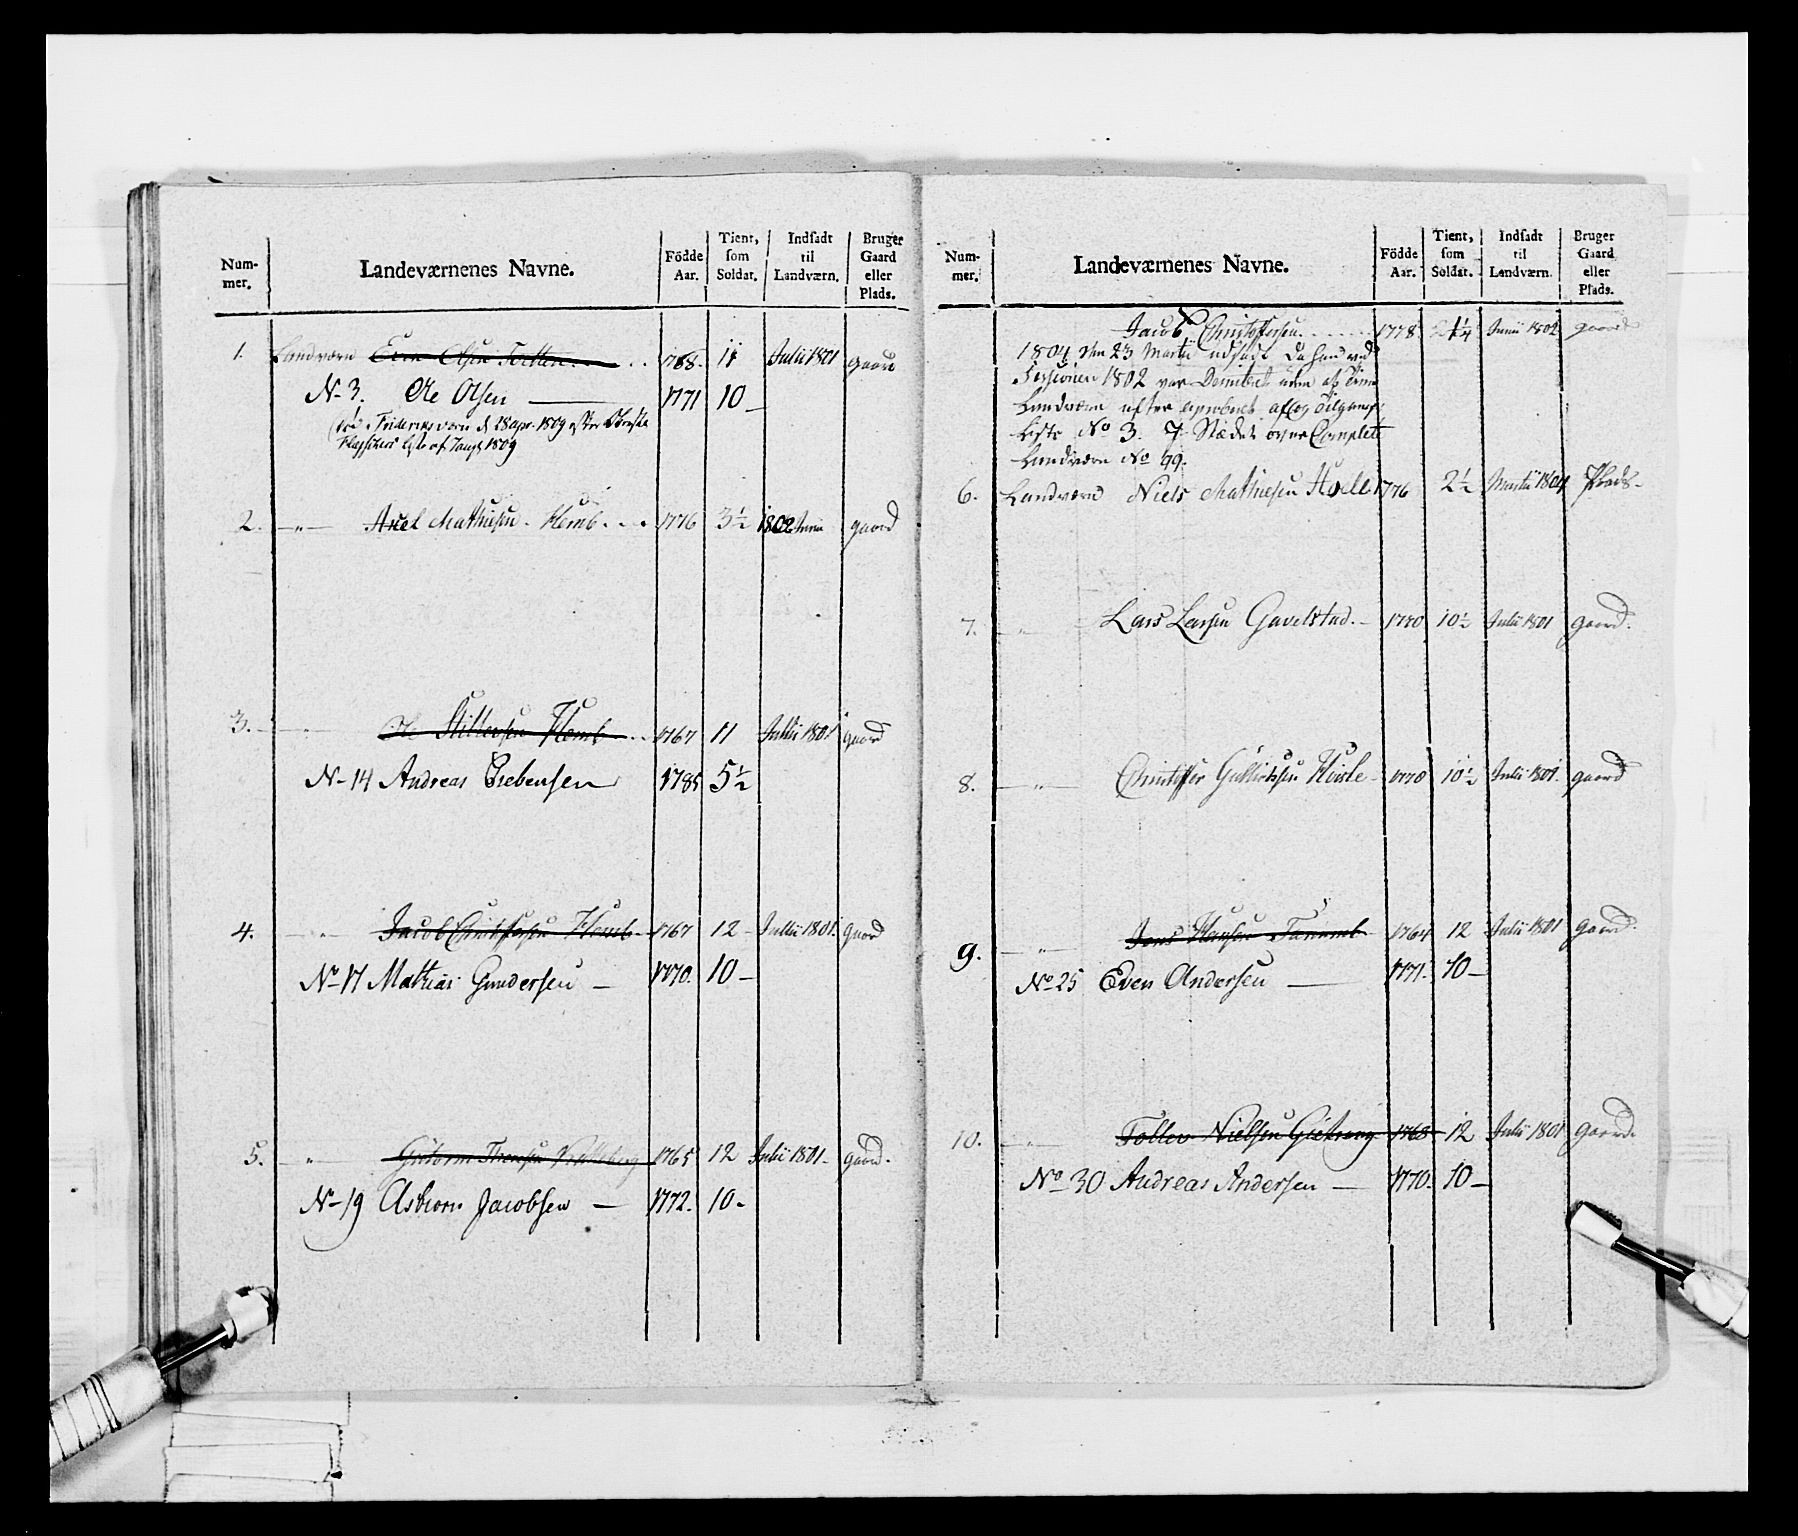 Num-mer. Landeværnenes Navne. Födde Aar. Tient, som Soldat. Indsadt til Landværn. Bruger Gaard eller Plads.
1. Landværn Even Olsen 1768. 11 Julii 1801 gaard
N- 3. Ole Olsen — 1771 10 —
Friderichsværn d 28 apr. 1809 efter
Liste af 1809
2. — " — Axel Mathiesen Klemb 1776 3 1/2 1802 Junii gaard
3. — " — Ole Klemb 1767 11 Julii 1801 gaard
N- 14 Andreas 1785 5 1/2
4. — " — Jacob Christophersen Klemb 1767 12 Julii 1801. gaard
No 17 Mathias Gundersen — 1770. 10 —
5. " Guttorm 1765 12 Julii 1801 - gaard.
No 19 Asbiorn Jacobsen — 1772. 10 -
Num-mer. Landeværnenes Navne. Födde Aar. Tient, som Soldat. Indsadt til Landværn. Bruger Gaard eller Plads.
Jacob Christophersen 1778. 2 1/4 Junii 1802 gaard
1804 den 23 Martii udsadt da han ved
Sessionen 1802 var
Landværn efter
Liste No 3. 7. Stædet over Complett
Landværn No 99.
6. Landværn Niels Mathiesen 1776 2 1/2 Martii 1804 Plads -
7. — " — Lars Larsen Gavelstad. - 1770 10 1/2 Julii 1801 gaard.
8. — " — Christopher 1770 10 1/2 Julii 1801. gaard
9. — " — Jens Hansen 1764 12 Julii 1801 gaard.
No 25 Even Andersen — 1771. 10 —
10. — " — Tollev Nielsen 1768 12 Julii 1801 gaard.
No 30 Andreas Andersen — 1770. 10 —